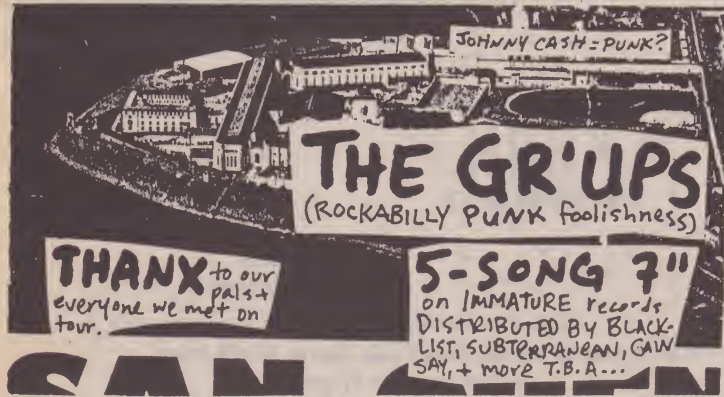 JOHNNY CASH = PUNK?
THE GR'UPS
(ROCKABILLY PUNK foolishness)
THANX to our
pals +
everyone we met on
tour.
5-SONG 7"
on IMMATURE records
DISTRIBUTED BY BLACK-
LIST, SUBTERRANEAN, GAWN
SAY, + more T.B.A...
SAN QUEN